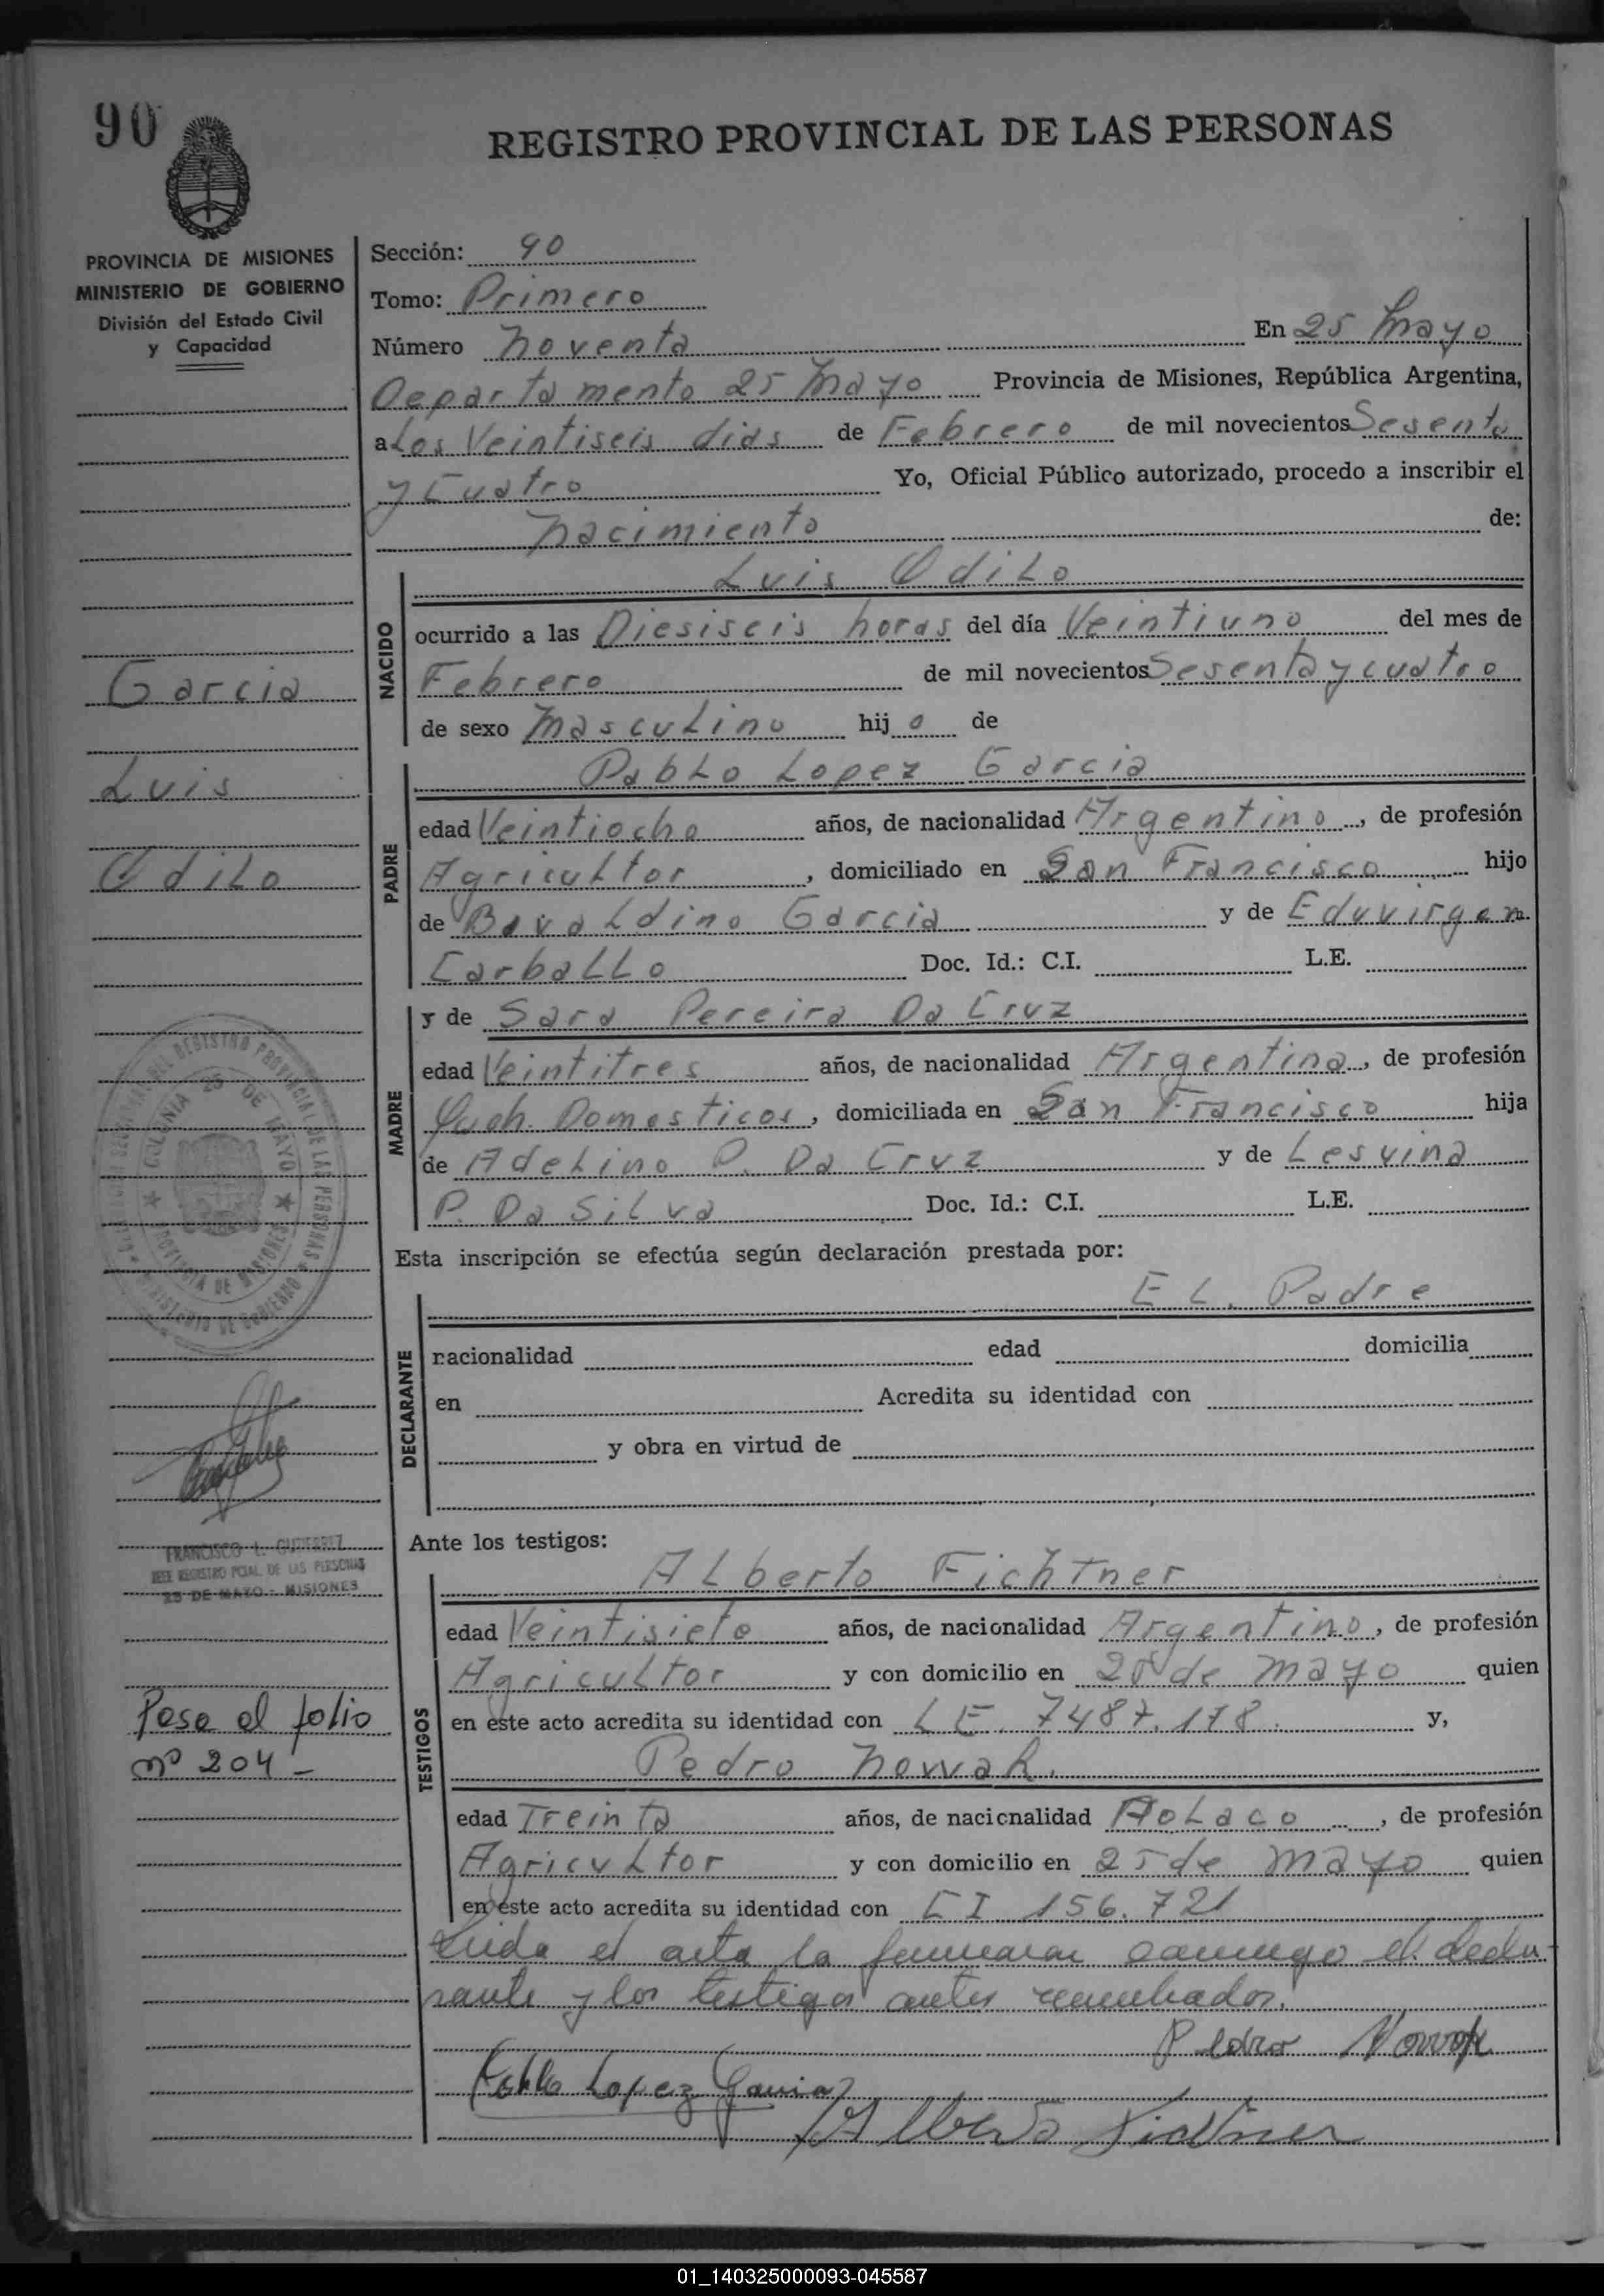 90
REGISTRO PROVINCIAL DE LAS PERSONAS
PROVINCIA DE MISIONES
MINISTERIO DE GOBIERNO
División del Estado Civil
y Capacidad
Sección: 90
Tomo: Primero
Número Noventa En 25 Mayo
Departamento 25 Mayo Provincia de Misiones, República Argentina,
a Los Veintiseis dias de Febrero de mil novecientos Sesenta
y Cuatro Yo, Oficial Público autorizado, procedo a inscribir el
Nacimiento de:
NACIDO
Luis Odilo
ocurrido a las Diesiseis horas del día Veintiuno del mes de
Febrero de mil novecientos Sesenta y cuatro
de sexo Masculino hij o de
Garcia
Luis
Odilo
PADRE
Pablo Lopez Garcia
edad Veintiocho años, de nacionalidad Argentino, de profesión
Agricultor, domiciliado en San Francisco hijo
de Garcia y de Eduvirgen
Carballo Doc. Id.: C.I. L.E.
MADRE
y de Sara Pereira Da Cruz
edad Veintitres años, de nacionalidad Argentina, de profesión
Queh. Domesticos, domiciliada en San Francisco hija
de Adelino P. Da Cruz y de Lesvina
P. Da Silva Doc. Id.: C.I. L.E.
COLONIA 25 DE MAYO
PROVINCIA DE MISIONES
Esta inscripción se efectúa según declaración prestada por:
DECLARANTE
El. Padre
nacionalidad edad domicilia
en Acredita su identidad con
y obra en virtud de
FRANCISCO L. GUTIERREZ
JEFE REGISTRO PCIAL. DE LAS PERSONAS
25 DE MAYO - MISIONES
Ante los testigos:
TESTIGOS
Alberto Fichtner
edad Veintisiete años, de nacionalidad Argentino, de profesión
Agricultor y con domicilio en 25 de Mayo quien
en este acto acredita su identidad con L E. 7487.178. y,
Pedro Nowak.
Pasa al folio
nº 204 -
edad Treinta años, de nacionalidad Polaco, de profesión
Agricultor y con domicilio en 25 de Mayo quien
en este acto acredita su identidad con C I 156.721
Leida el acta la firmaron conmigo el decla-
rante y los testigos antes nombrados.
Pedro Nowak
Pablo Lopez Garcia
Alberto Fichtner
01_140325000093-045587